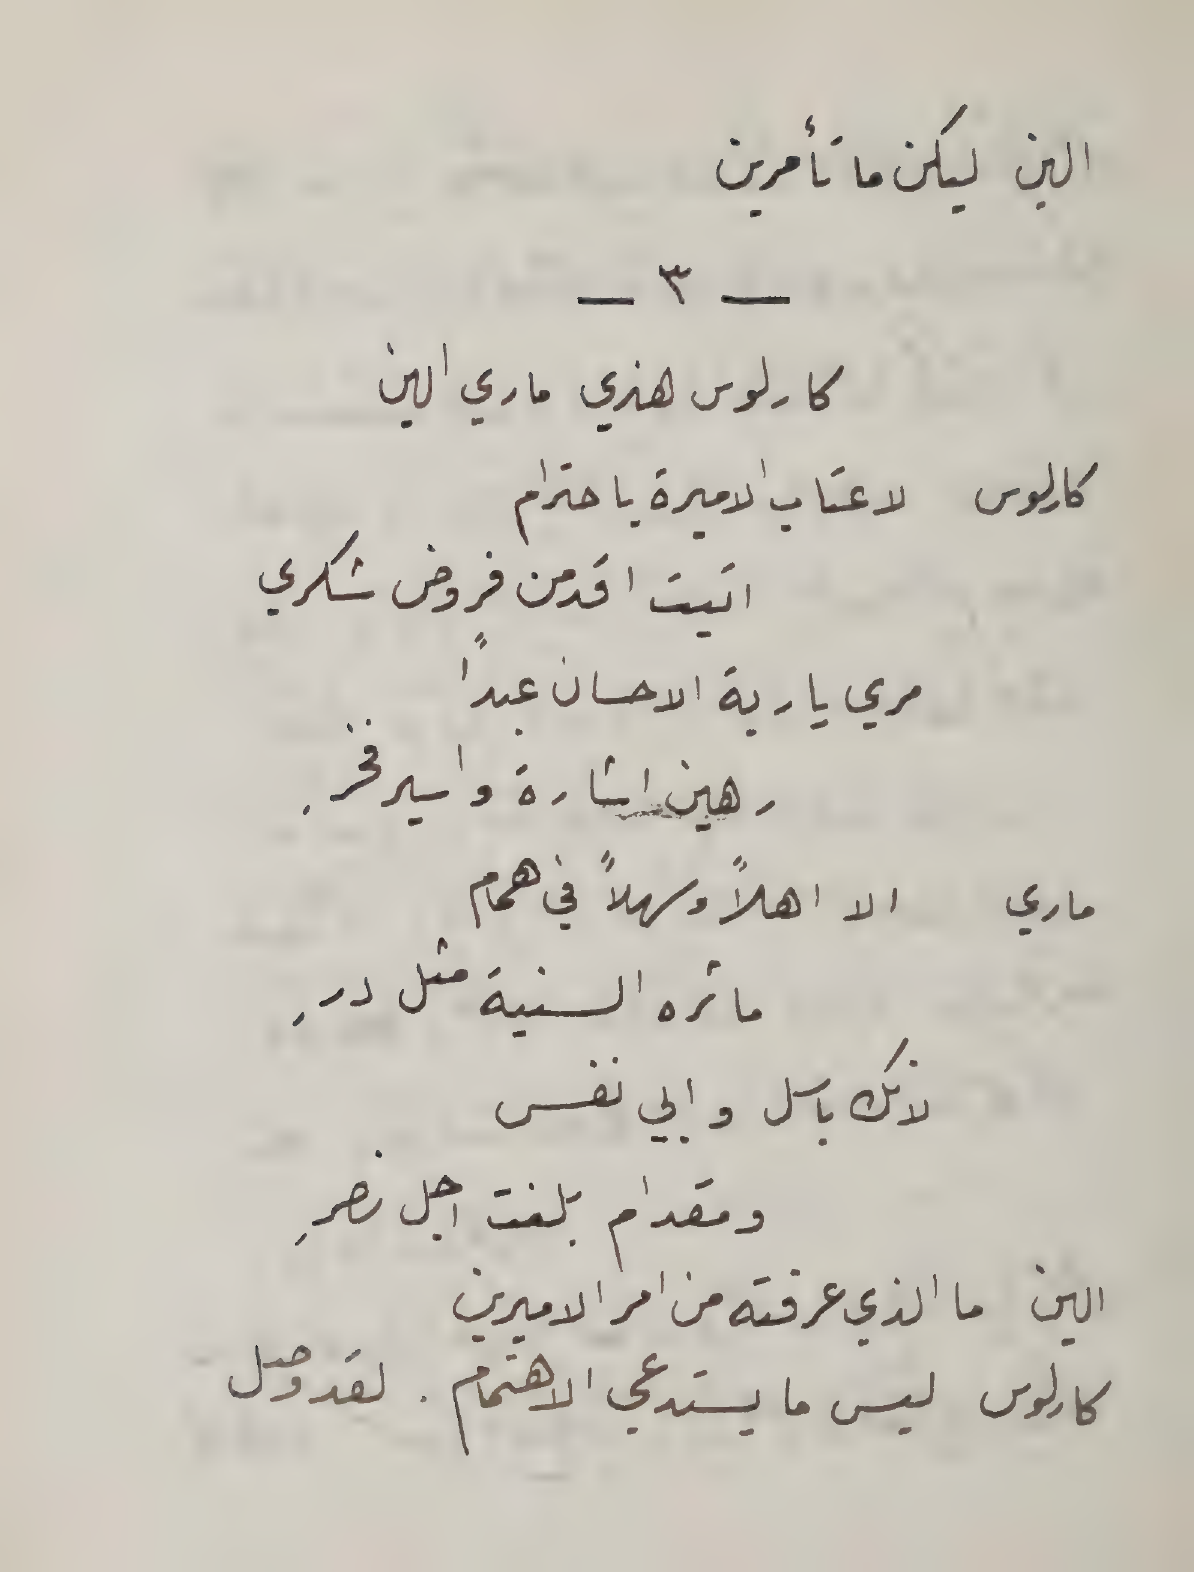 الين ليكن ما تأمرين
— ٣ —
كارلوس هذي ماري الين
كارلوس لاعتاب الاميرة باحترام
اتيت اقدمن فروض شكري
مري يا ربة الاحسان عبداً
رهين اشارة واسير فخرِ
ماري الا اهلاً وسهلاً في همام
ماثره السنية مثل درِ
لانك باسل وابي نفس
ومقدام بلغت اجل نصرِ
الين ما الذي عرفته من امر الاميرين
كارلوس ليس ما يستدعي الاهتمام . لقد وصل